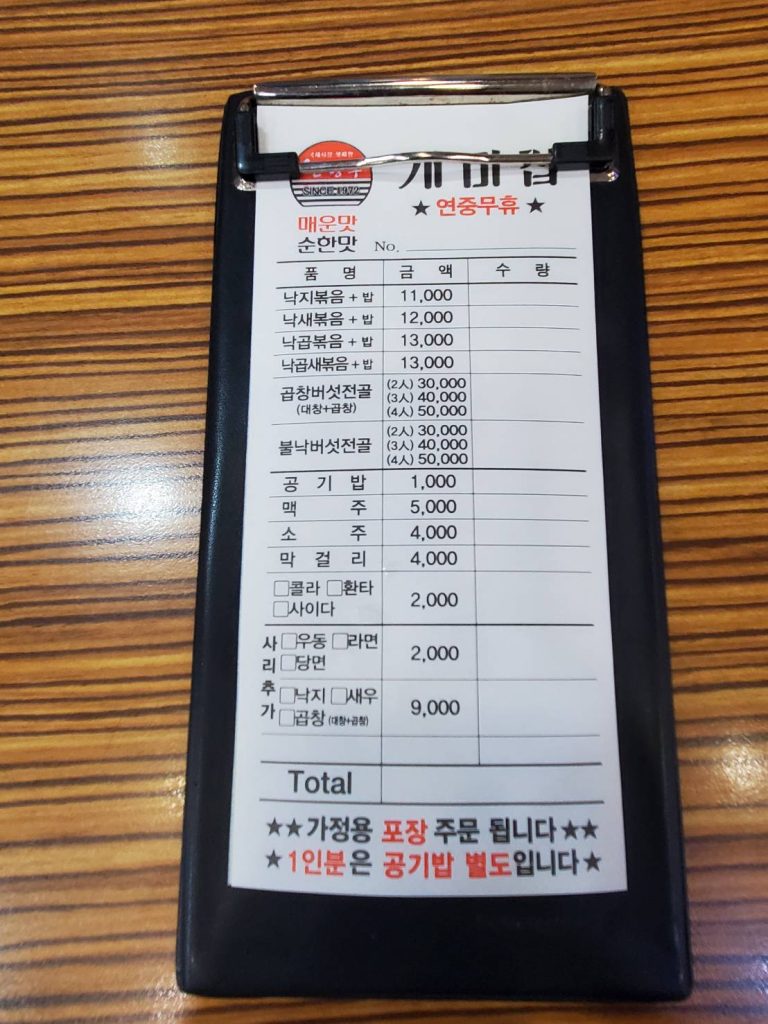 SINCE 1972
개미집
★ 연중무휴 ★
매운맛
순한맛 No.
품 명 금 액 수 량
낙지볶음 + 밥 11,000
낙새볶음 + 밥 12,000
낙곱볶음 + 밥 13,000
낙곱새볶음 + 밥 13,000
곱창버섯전골 (대창+곱창) (2人) 30,000
(3人) 40,000
(4人) 50,000
불낙버섯전골 (2人) 30,000
(3人) 40,000
(4人) 50,000
공 기 밥 1,000
맥 주 5,000
소 주 4,000
막 걸 리 4,000
□콜라 □환타
□사이다 2,000
사리추가
□우동 □라면
□당면 2,000
□낙지 □새우
□곱창 (대창+곱창) 9,000
Total
★★가정용 포장 주문 됩니다★★
★1인분은 공기밥 별도입니다★